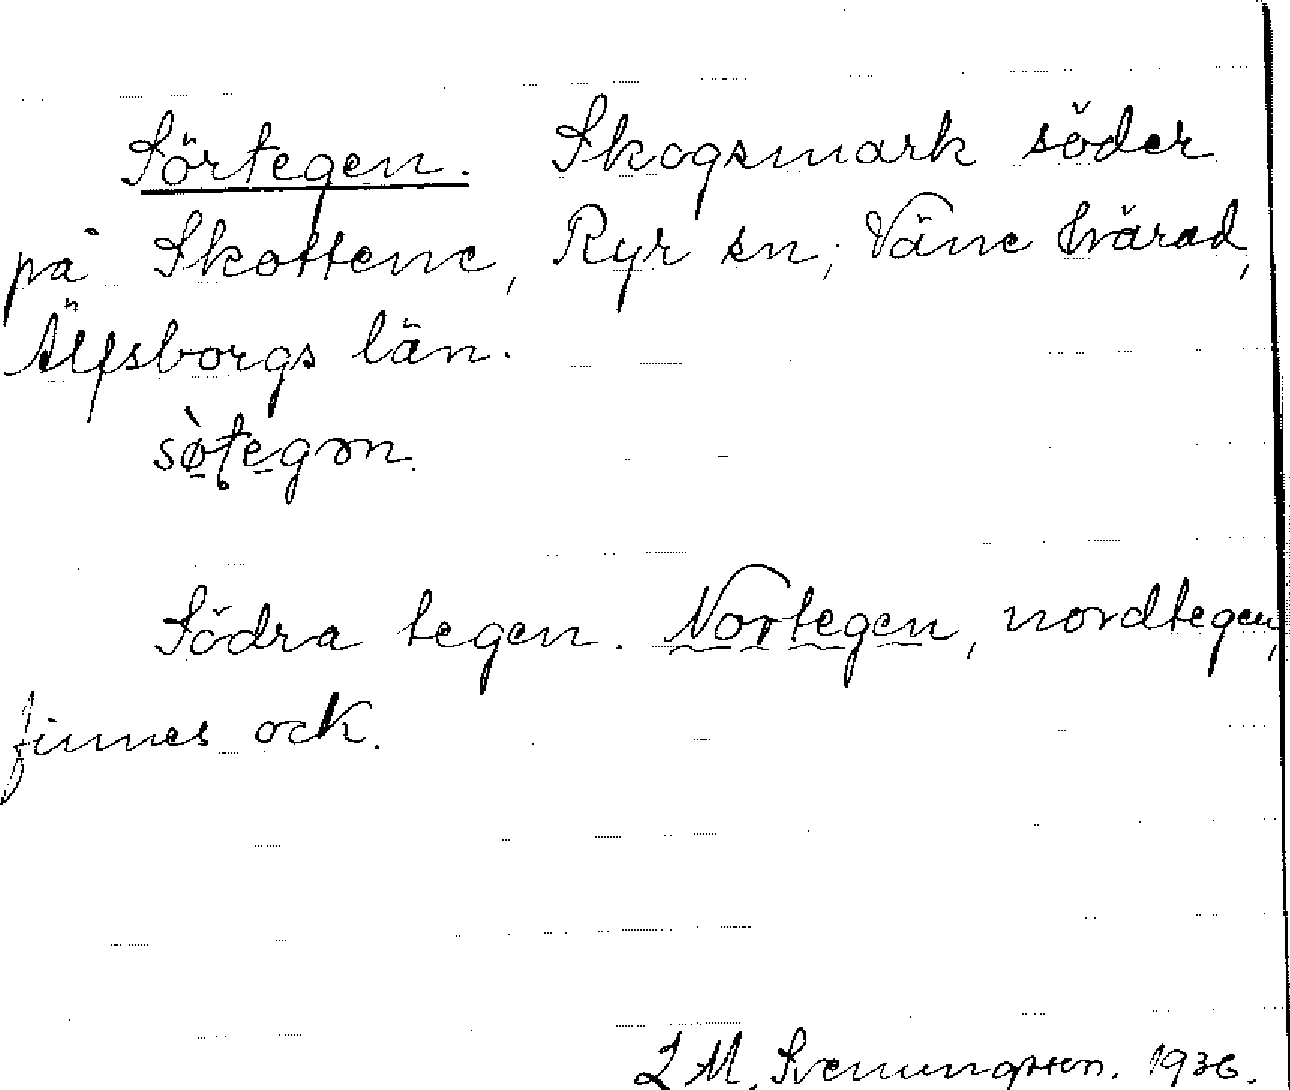 Sörtegen. Skogsmark söder
på Skottene, Ryr sn; Väne härad,
Älfsborgs län.
sø̀ʈegən.
Södra tegen. Nortegen, nordtegen,
finnes ock.
L M. Svenungsson. 1936.